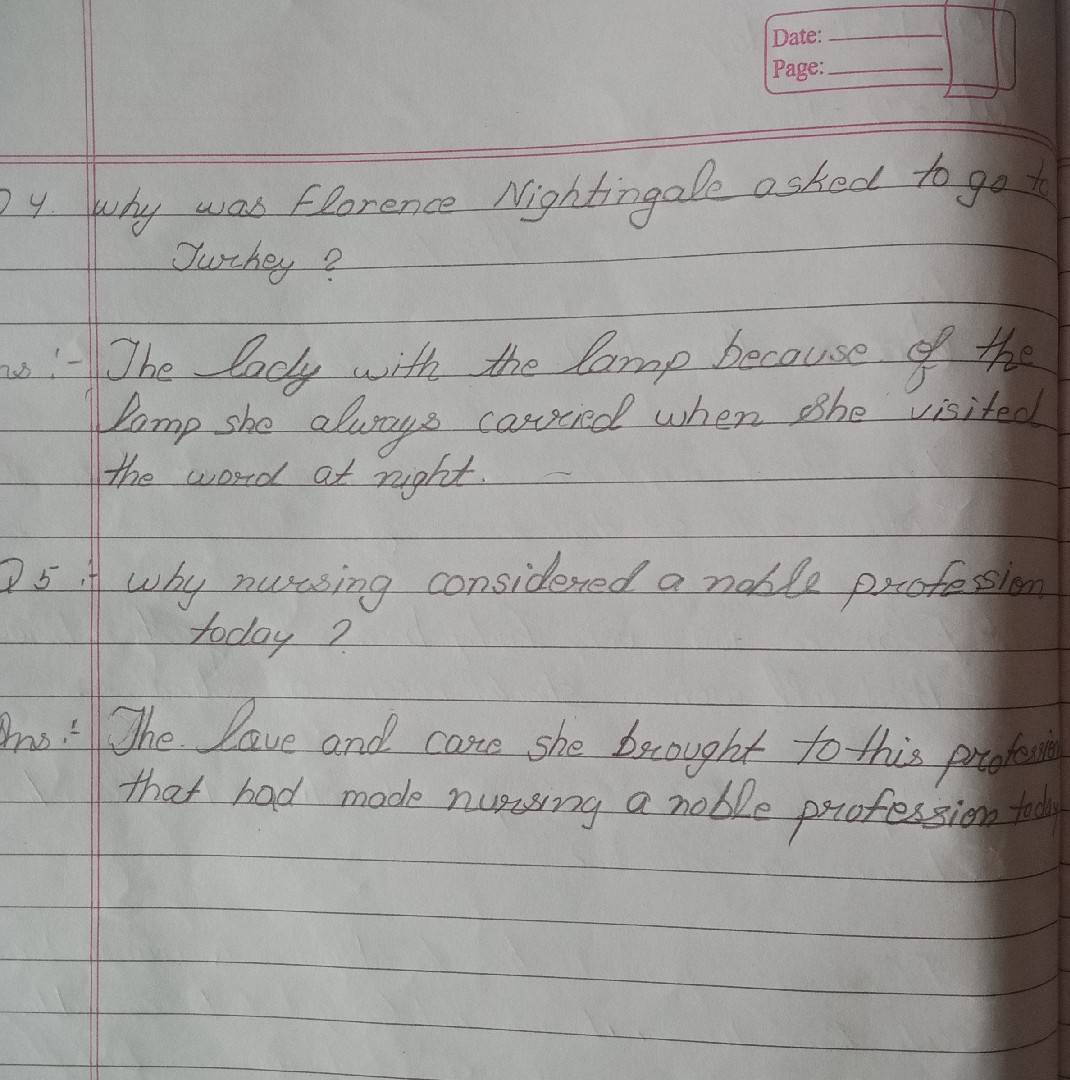 Date:
Page:
Q 4. Why was Florence Nightingale asked to go to
Turkey ?
ns :- The lady with the lamp because of the
lamp she always carried when she visited
the word at night.
Q 5 :- why nursing considered a noble profession
today ?
Ans :- The Love and care she brought to this profession
that had made nursing a noble profession today